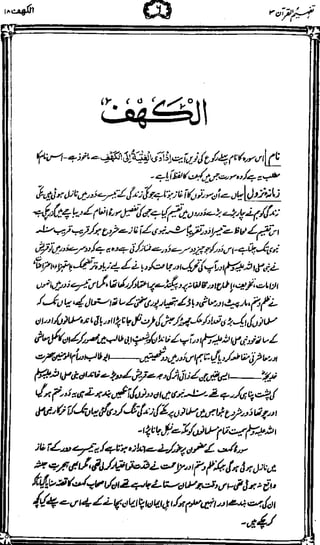 تفہیم القرآن ۳
۶
الکہف ۱۸
الکہف
نام اس سورہ کا نام پہلے رکوع کی نویں آیت اِذْ اَوَى الْفِتْيَةُ اِلَى الْكَهْفِ سے ماخوذ ہے۔ اس نام کا
مطلب یہ ہے کہ وہ سورت جس میں کہف کا لفظ آیا ہے۔
زمانۂ نزول یہاں سے اُن سورتوں کا آغاز ہوتا ہے جو مکی زندگی کے تیسرے دور میں نازل ہوئی ہیں۔ مکی
زندگی کو ہم نے چار بڑے بڑے دوروں میں تقسیم کیا ہے جن کی تفصیل سورۂ انعام کے دیباچے میں گزر چکی ہے۔
اس تقسیم کے لحاظ سے تیسرا دور تقریباً ۵ نبوی کے آغاز سے شروع ہو کر قریب قریب ۱۰
نبوی تک چلتا ہے۔ اس دور کو جو چیز دوسرے دور سے ممتاز کرتی ہے وہ یہ ہے کہ دوسرے دور میں تو قریش
نے نبی صلی اللہ علیہ وسلم اور آپ کی تحریک اور جماعت کو دبانے کے لیے زیادہ تر تضحیک، استہزاء، اعتراضات،
الزامات، تخویف، اطماع اور مخالفانہ پروپیگنڈے پر اعتماد کر رکھا تھا، مگر اس تیسرے دور میں انہوں
نے ظلم و ستم، مار پیٹ اور معاشی دباؤ کے ہتھیار پوری سختی کے ساتھ استعمال کیے، یہاں تک کہ
مسلمانوں کی ایک بڑی تعداد کو ملک چھوڑ کر حبش کی طرف نکل جانا پڑا، اور باقی ماندہ مسلمانوں کو اور ان
کے ساتھ نبی صلی اللہ علیہ وسلم اور آپ کے خاندان کو شعب ابی طالب میں محصور کر کے ان کا مکمل معاشی
اور معاشرتی مقاطعہ کر دیا گیا۔ تاہم اس دور میں دو شخصیتیں ابو طالب اور ام المومنین حضرت
خدیجہ ایسی تھیں جن کے ذاتی اثر کی وجہ سے قریش کے دو بڑے خاندان نبی صلی اللہ علیہ وسلم
کی پشت پناہی کر رہے تھے۔ ۱۰ نبوی میں ان دونوں کی آنکھیں بند ہوتے ہی یہ دور ختم ہو گیا
اور چوتھا دور شروع ہوا جس میں مسلمانوں پر مکے کی زندگی تنگ کر دی گئی یہاں تک کہ آخر کار نبی صلی
اللہ علیہ وسلم سمیت تمام مسلمانوں کو مکہ سے نکل جانا پڑا۔
سورۂ کہف کے مضمون پر غور کرنے سے اندازہ ہوتا ہے کہ یہ تیسرے دور کے آغاز
میں نازل ہوئی ہوگی جبکہ ظلم و ستم اور مزاحمت نے شدت تو اختیار کر لی تھی، مگر ابھی ہجرت حبشہ
واقع نہ ہوئی تھی۔ اس وقت جو مسلمان ستائے جا رہے تھے ان کو اصحاب کہف کا قصہ سنایا گیا تاکہ
ان کی ہمت بندھے اور انہیں معلوم ہو کہ اہل ایمان اپنا ایمان بچانے کے لیے اس سے پہلے کیا کچھ
کر چکے ہیں۔